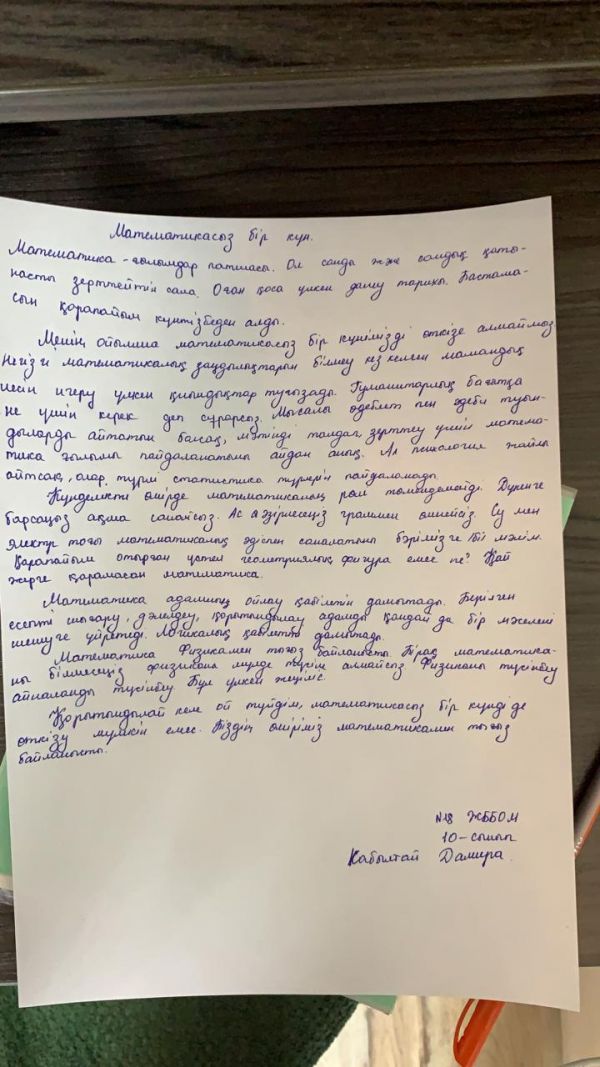 Математикасыз бір күн.
Математика - ғылымдар патшасы. Ол санды және сандық қаты-
насты зерттейтін сала. Оған қоса үлкен даму тарихы. Бастама-
сын қарапайым күнтізбеден алды.
Менің ойымша математикасыз бір күнімізді өткізе алмаймыз
Негізгі математикалық заңдылықтарын білмеу кез келген мамандық
иесін игеру үлкен қиындықтар туғызады. Гуманитарлық бағытқа
не үшін керек деп сұрарсыз. Мысалы әдебиет пен әдеби туын-
дыларды айтатын болсақ, мәтінді талдап, зерттеу үшін матема-
тика ғылымы пайдаланатыны айдан анық. Ал психология жайлы
айтсақ, олар түрлі статистика түрлерін пайдаланады.
Күнделікті өмірде математиканың рөлі төмендемейді. Дүкенге
барсаңыз ақша санайсыз. Ас әзірлесеңіз граммен өлшейсіз. Су мен
электр тоғы математикалық әдіспен саналатыны бәрімізге мәлім.
Қарапайым отырған үстел геометриялық фигура емес пе? Қай
жерге қарамасаң математика.
Математика адамның ойлау қабілетін дамытады. Берілген
есепті шығару, дәлелдеу, қорытындылау адамды қандай да бір мәселені
шешуге үйретеді. Логикалық қабілетті дамытады.
Математика Физикамен тығыз байланысты. Бірақ математика-
ны білмесеңіз физиканы мүлде түсіне алмайсыз Физиканы түсінбеу
айналаңды түсінбеу Бұл үлкен жеңіліс.
Қорытындылай келе ой түйдім, математикасыз бір күнді де
өткізу мүмкін емес. Біздің өміріміз математикамен тығыз
байланысты.
№18 ЖББОМ
10-сынып
Қабылтай Дамира.